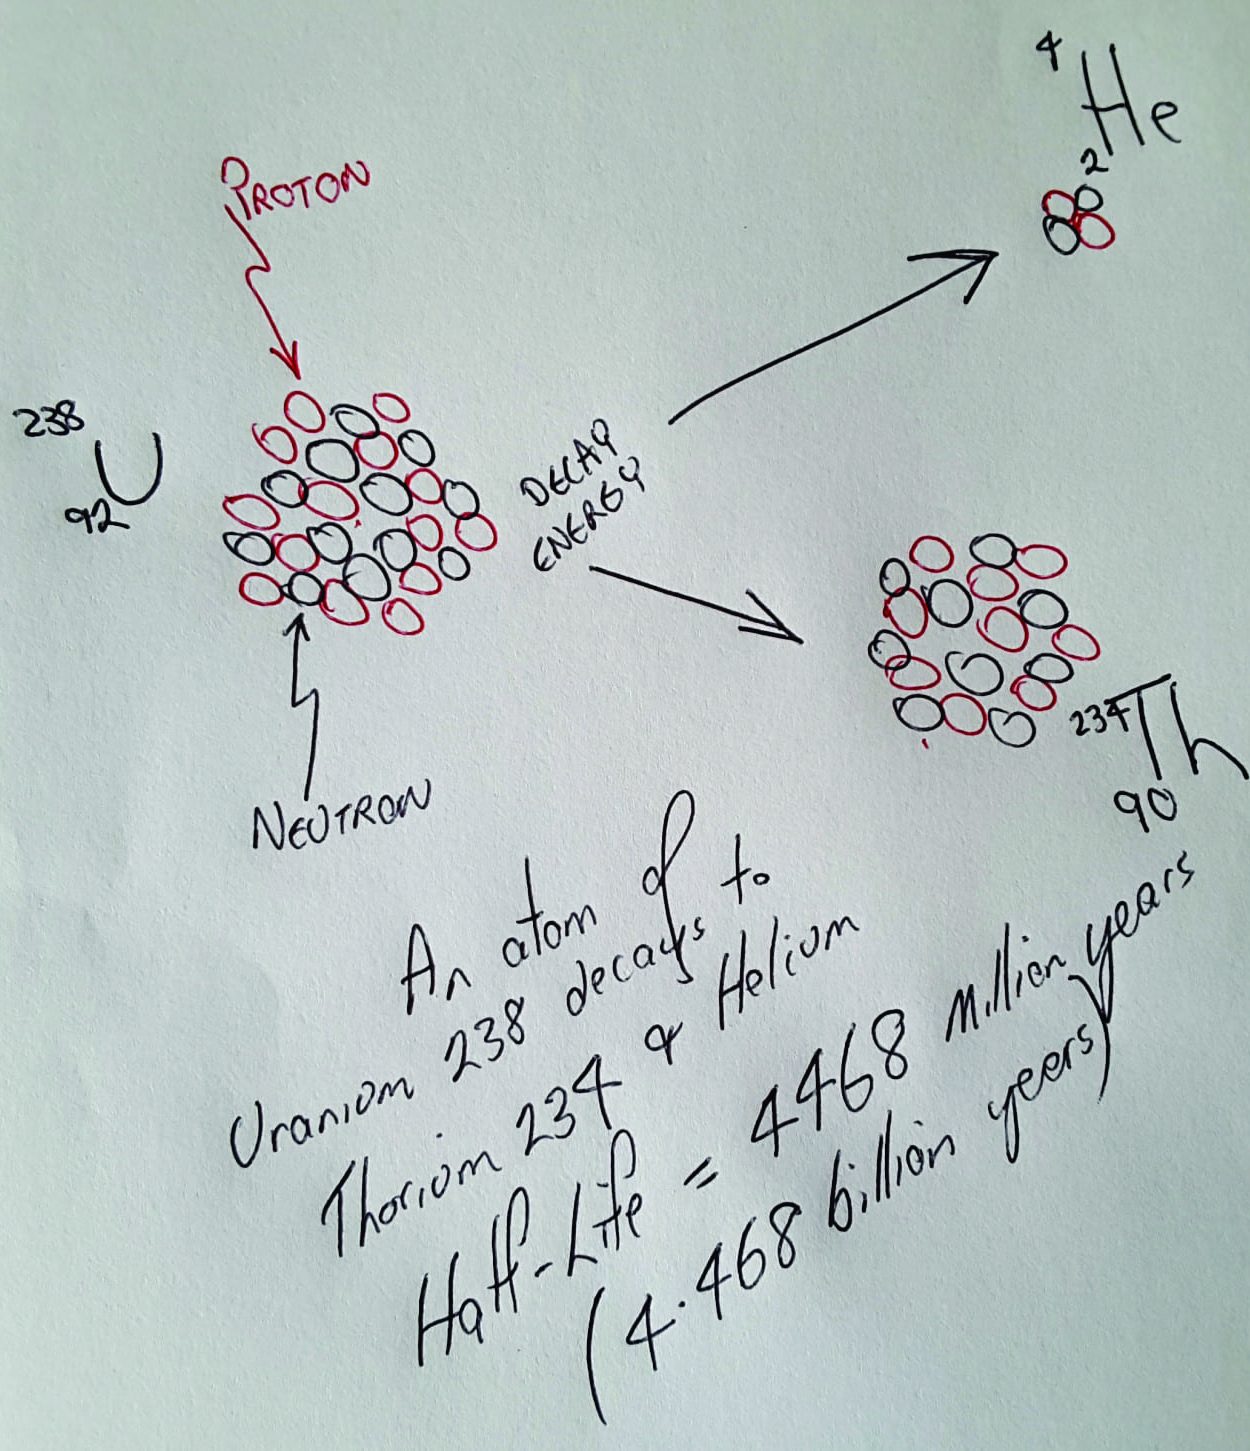 4
He
2
PROTON
238
U
92
DECAY
ENERGY
234
Th
90
NEUTRON
An atom of
Uranium 238 decays to
Thorium 234 & Helium
Half-Life = 4468 Million years
(4.468 billion yeers)